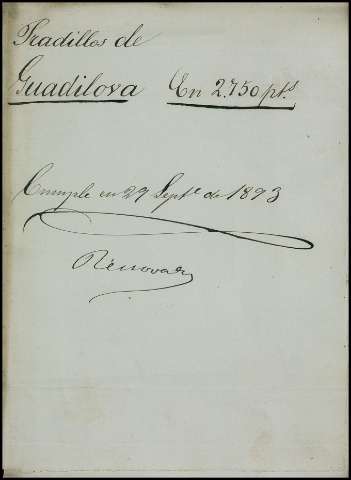 Pradillos de
Guadilova En 2.750 pts
Cumple en 29 Septe de 1893
Renovar